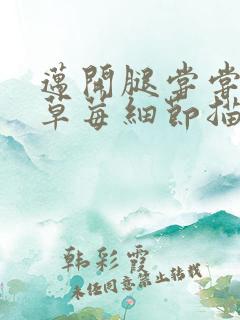 邁開腿嘗嘗
草莓細節描
韩彩霞
未经同意禁止转载